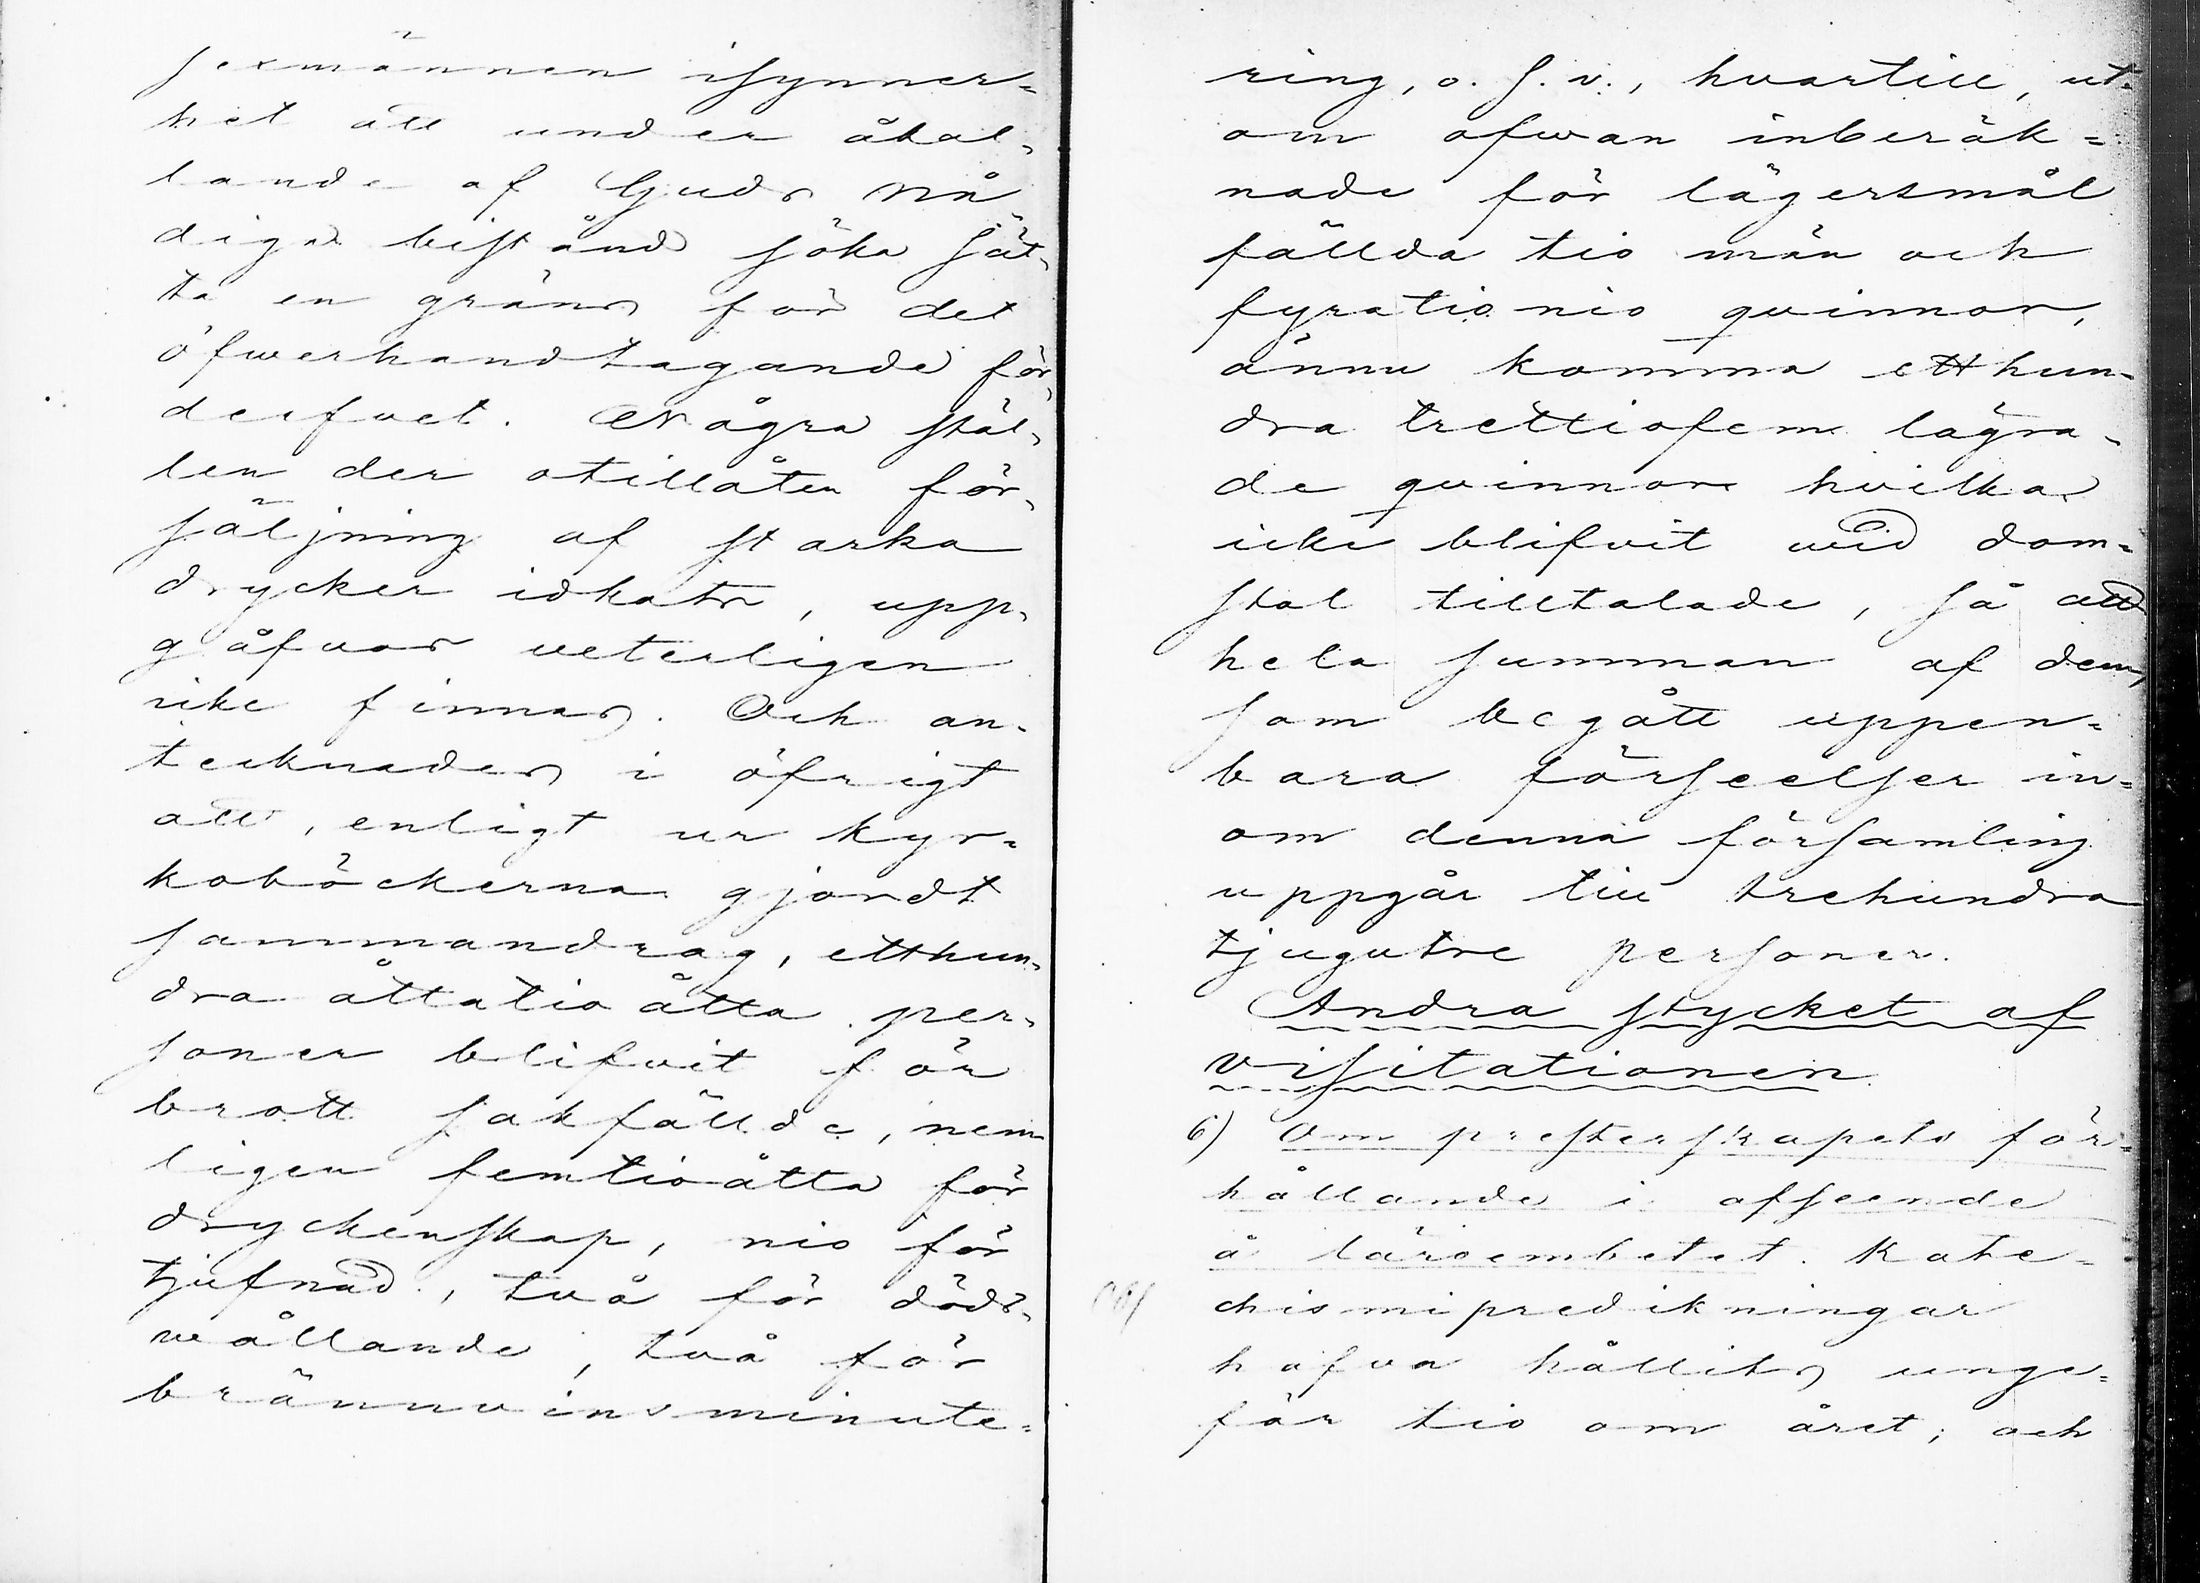 sexmännen isynner=
het att under åkal-
lande af Guds nå
diga bistånd söka sät-
ta en gräns för det
öfwerhandtagande för-
derfvet. Några stäl-
len der otillåten för-
säljning af starka
drycker idkats, upp-
gåfvos veterligen
icke finnas. Och an-
tecknades i öfrigt
att, enligt ur kyr=
koböckerna gjordt
sammandrag, etthun-
dra åttatio åtta per-
soner blifvit för
brott sakfällde, nem
ligen femtioåtta för
dryckenskap, nio för
tjufnad, två för döds-
vållande, två för
bränvinsminute=
ring, o. s. v., hvartill, ut-
om ofwan inberäk=
nade för lägersmål
fällda tio män och
fyratio nio qvinnor,
ännu komma etthun-
dra trettiofem lägra-
de qvinnor hvilka
icke blifvit wid dom=
stol tilltalade, så att
hela summan af dem,
som begått uppen=
bara förseelser in=
om denna församling
uppgår till trehundra
tjugutre personer.
Andra stycket af
visitationen.
6) Om presterskapets för=
hållande i afseende
å läroembetet. Kate=
chismipredikningar
hafva hållits unge=
för tio om året; och